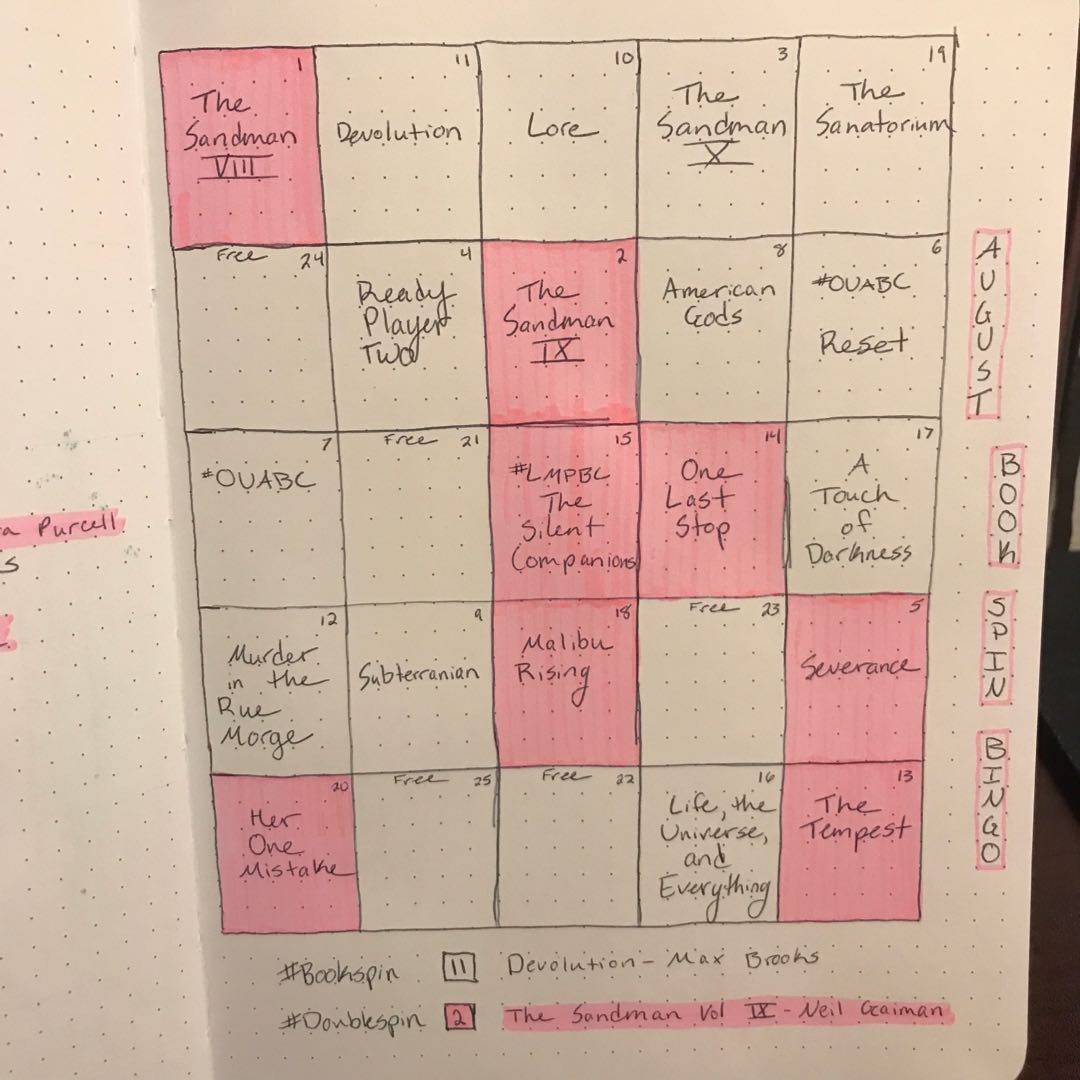 1
The
Sandman
VIII
11
Devolution
10
Lore
3
The
Sandman
X
19
The
Sanatorium
Free 24
4
Ready
Player
Two
2
The
Sandman
IX
8
American
Gods
6
#OUABC
Reset
7
#OUABC
Free 21
15
#LMPBC
The
Silent
Companions
14
One
Last
Stop
17
A
Touch
of
Darkness
12
Murder
in the
Rue
Morge
9
Subterranian
18
Malibu
Rising
Free 23
5
Severance
20
Her
One
Mistake
Free 25
Free 22
16
Life, the
Universe,
and
Everything
13
The
Tempest
AUGUST
BOOK
SPIN
BINGO
#Bookspin 11 Devolution - Max Brooks
#Doublespin 2 The Sandman Vol IX - Neil Gaiman
a Purcell
s